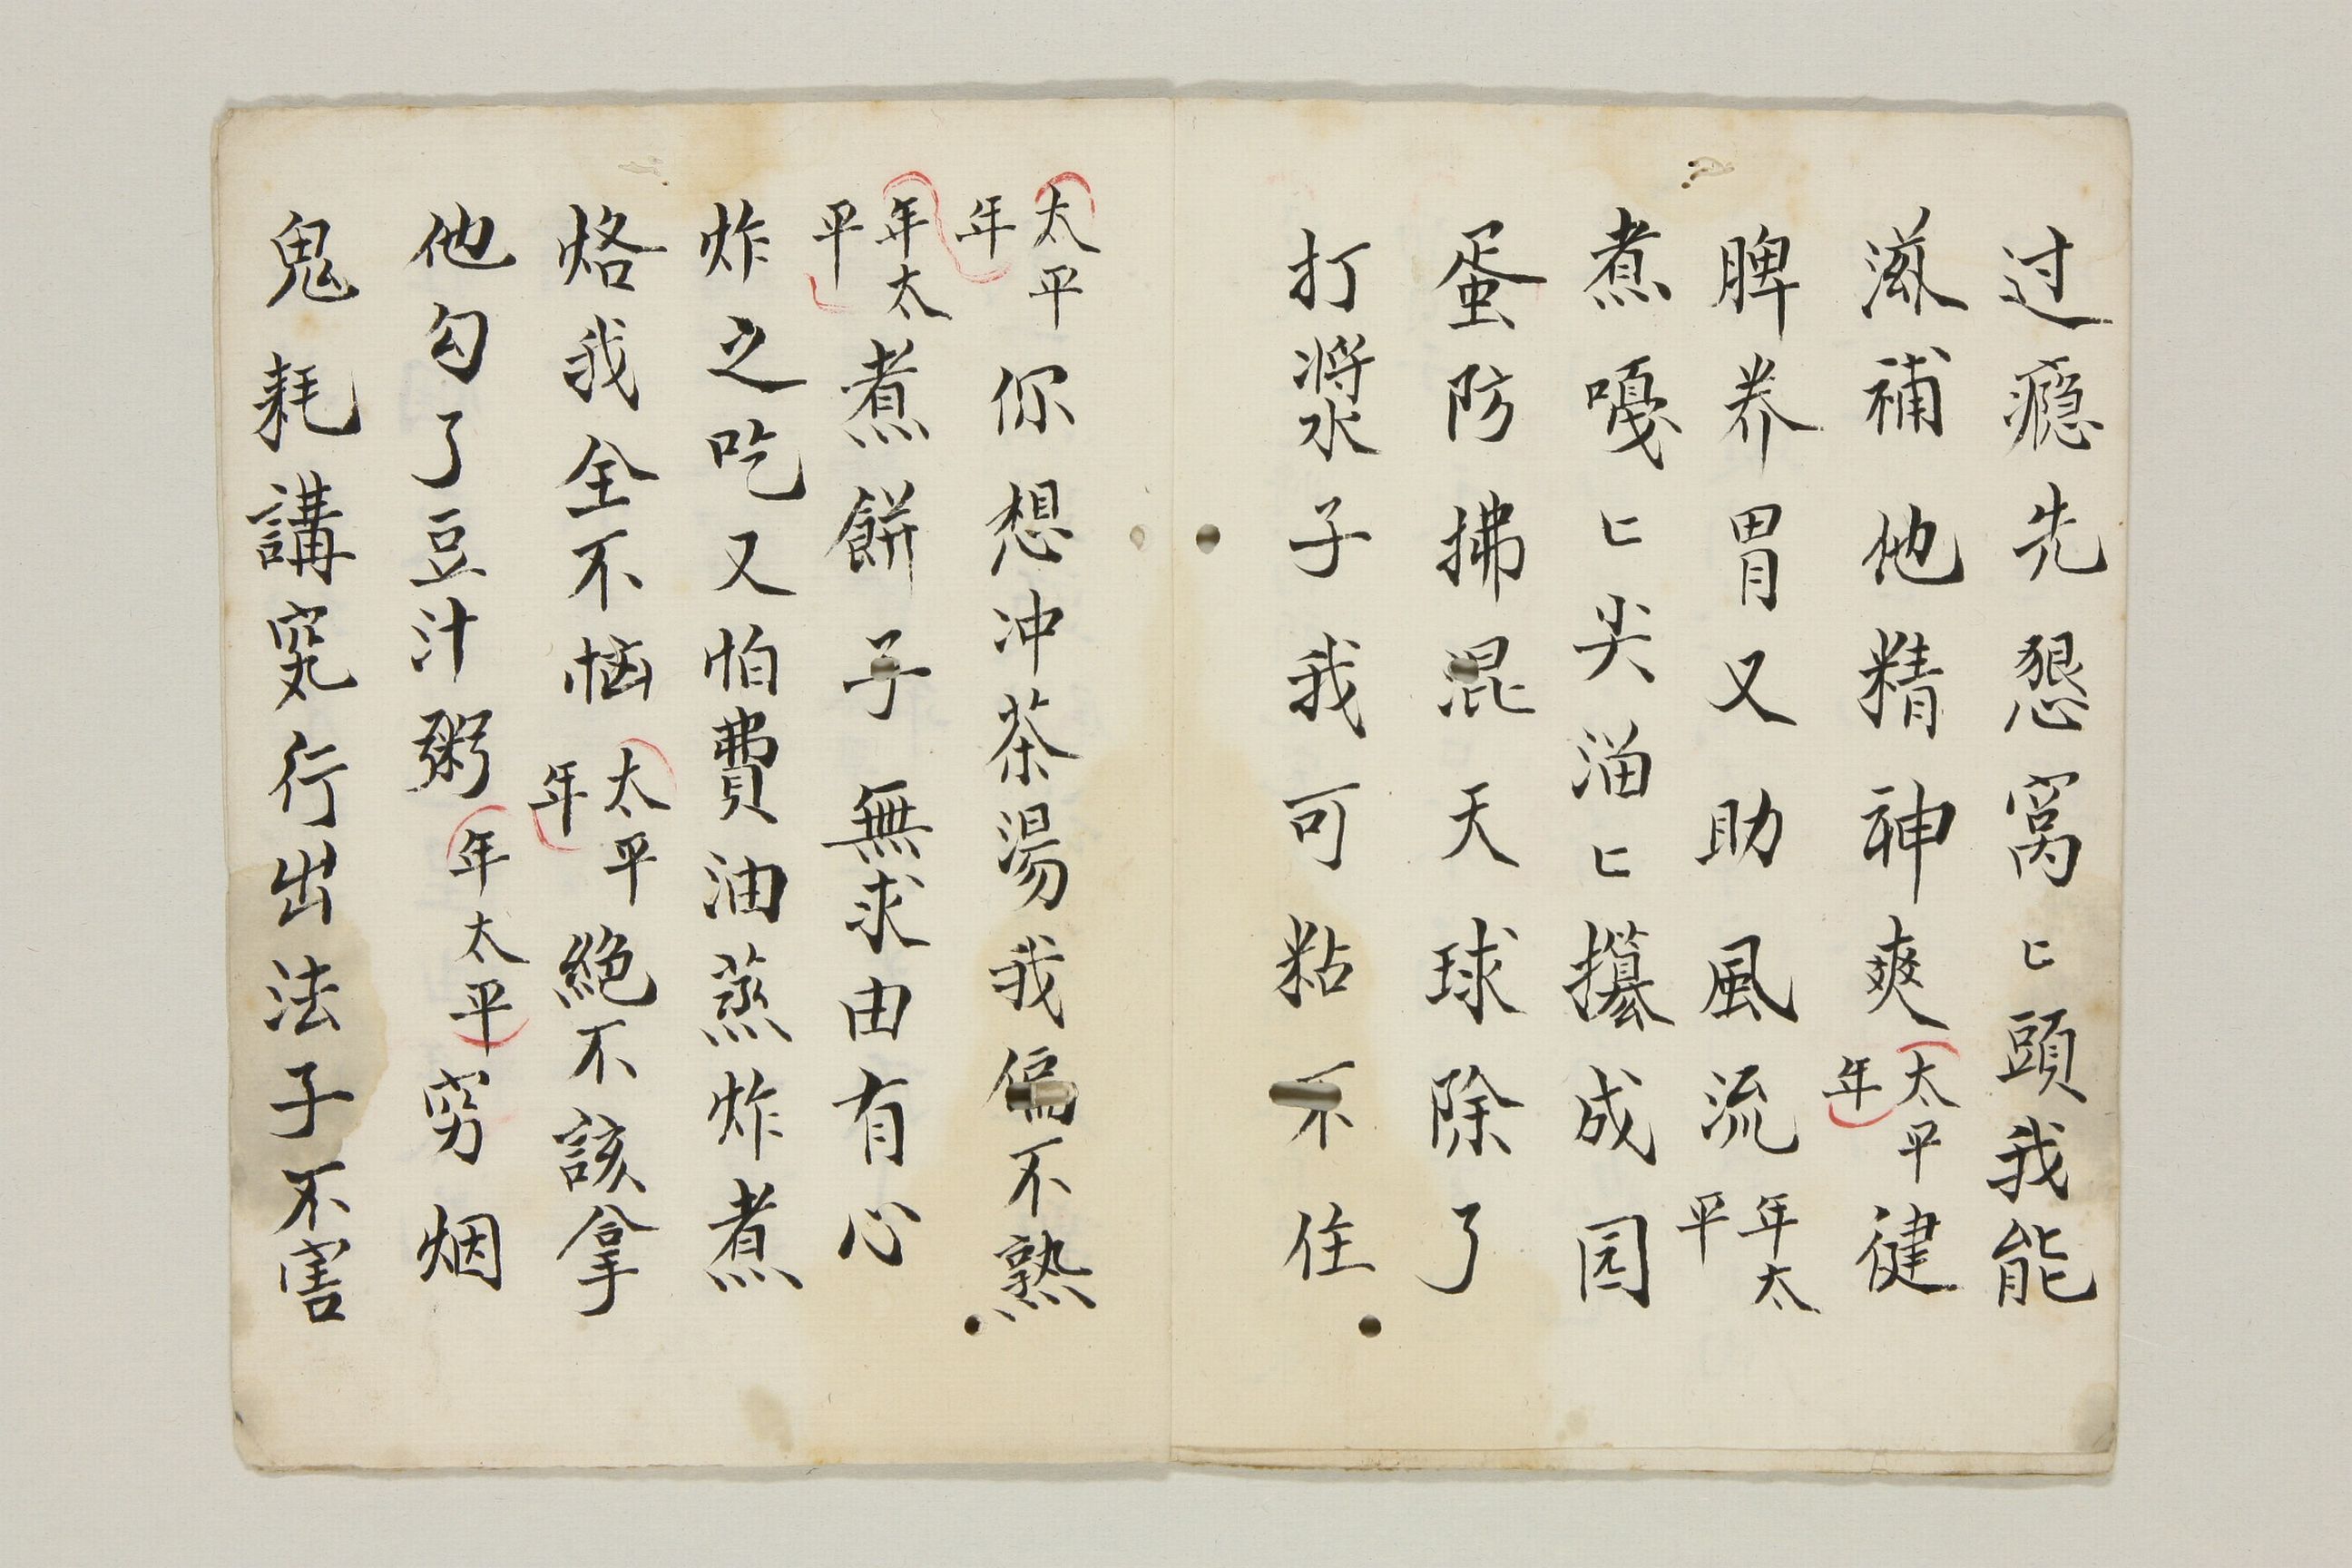 过癮先懇窩匕頭我能
滋補他精神爽太平年健
脾养胃又助風流年太平
煮嘎匕尖溜匕攥成园
蛋防拂混天球除了
打漿子我可粘不住
太平年你想冲茶湯我偏不熟
年太平煮餅子無求由有心
炸之吃又怕費油蒸炸煮
烙我全不惱太平年絕不該拿
他勾了豆汁粥年太平窮烟
鬼耗講究行出法子不害